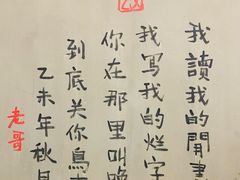 我讀我的閒書
我写我的烂字
你在那里叫唤
到底关你鳥
乙未年秋月
老哥